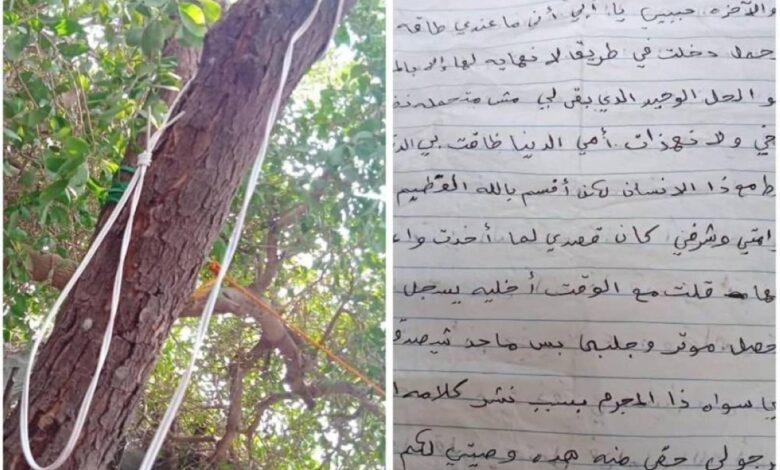 والآخره حبيبي يا أبي أنى ما عندي طاقه
حمل دخلت في طريق لا نهايه لها إلا بالم
و الحل الوحيد الذي بقى لي مش متحمله
خي ولا تهذات. أمي الدنيا ظاقت بي الد
طمع ذا الانسان لكن أقسم بالله العظيم
امتي وشرفي كان قصدي لما أخذت وا
ها قلت مع الوقت أخليه يسجل
حصل موتر وجلبي بس ماحد شيصدق
ي سواه ذا المجرم بسبب نشر كلامه ا
جولي حقي منه هذه وصيتي لكم